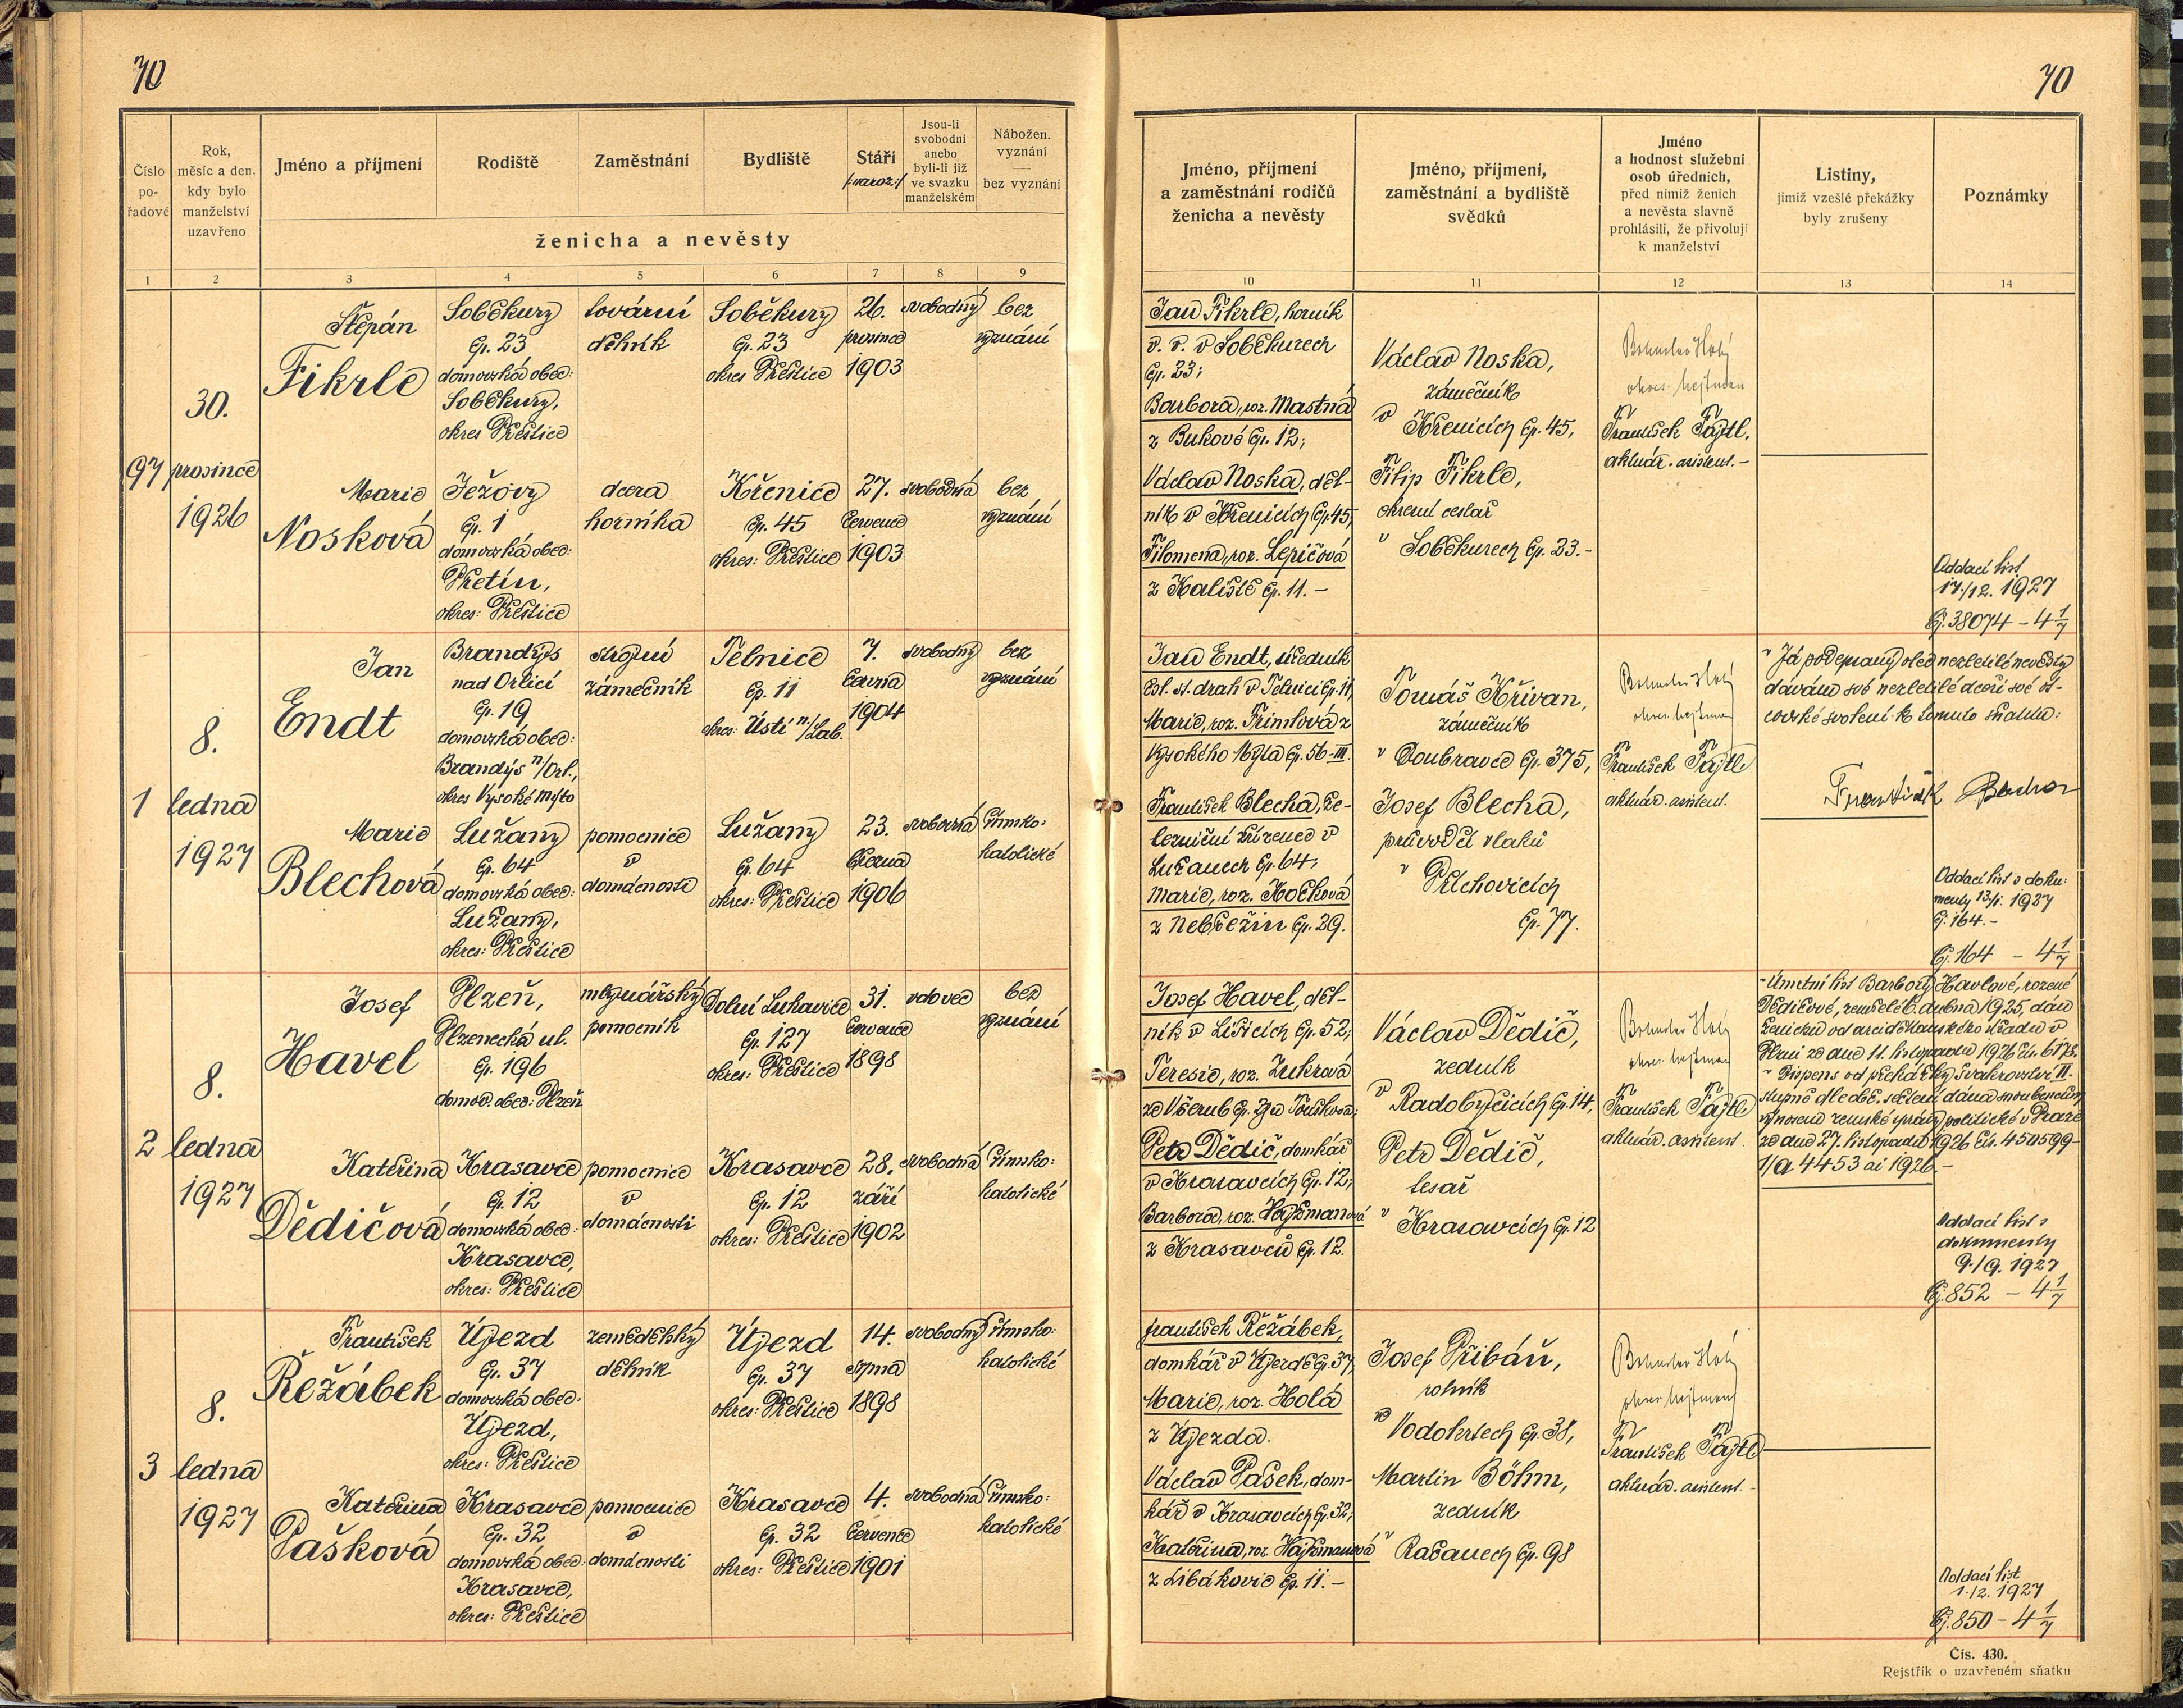 70
Číslo pořadové
Rok, měsíc a den, kdy bylo manželství uzavřeno
Jméno a příjmení
Rodiště
Zaměstnání
Bydliště
Stáří
/:naroz:/
Jsou-li svobodni anebo byli-li již ve svazku manželském
Nábožen. vyznání
bez vyznání
ženicha a nevěsty
1 2 3 4 5 6 7 8 9
97
30.
prosince
1926
Štěpán
Fikrle
Soběkury
čp. 23
domovská obec:
Soběkury,
okres Přeštice
tovární
dělník
Soběkury
čp. 23
okres Přeštice
26.
prosince
1903
svobodný
bez
vyznání
Marie
Nosková
Ježovy
čp. 1
domovská obec:
Přetín,
okres: Přeštice
dcera
horníka
Křenice
čp. 45
okres: Přeštice
27.
července
1903
svobodná
bez
vyznání
1
8.
ledna
1927
Jan
Endt
Brandýs
nad Orlicí
čp. 19
domovská obec:
Brandýs n/Orl.,
okres Vysoké Mýto
strojní
zámečník
Telnice
čp. 11
okres: Ústí n/Lab.
7.
června
1904
svobodný
bez
vyznání
Marie
Blechová
Lužany
čp. 64
domovská obec:
Lužany,
okres: Přeštice
pomocnice
v
domácnosti
Lužany
čp. 64
okres: Přeštice
23.
března
1906
svobodná
římsko:
katolické
2
8.
ledna
1927
Josef
Havel
Plzeň,
Plzenecká ul.
čp. 196
domov. obec: Plzeň
mlynářský
pomocník
Dolní Lukavice
čp. 127
okres: Přeštice
31.
července
1898
vdovec
bez
vyznání
Kateřina
Dědičová
Krasavce
čp. 12
domovská obec:
Krasavce,
okres: Přeštice
pomocnice
v
domácnosti
Krasavce
čp. 12
okres: Přeštice
28.
září
1902
svobodná
římsko:
katolické
3
8.
ledna
1927
František
Řežábek
Újezd
čp. 37
domovská obec:
Újezd,
okres: Přeštice
zemědělský
dělník
Újezd
čp. 37
okres: Přeštice
14.
srpna
1898
svobodný
římsko:
katolické
Kateřina
Pašková
Krasavce
čp. 32
domovská obec:
Krasavce,
okres: Přeštice
pomocnice
v
domácnosti
Krasavce
čp. 32
okres: Přeštice
4.
července
1901
svobodná
římsko:
katolické
70
Jméno, příjmení a zaměstnání rodičů ženicha a nevěsty
Jméno, příjmení, zaměstnání a bydliště svědků
Jméno a hodnost služební osob úředních, před nimiž ženich a nevěsta slavně prohlásili, že přivolují k manželství
Listiny, jimiž vzešlé překážky byly zrušeny
Poznámky
10 11 12 13 14
Jan Fikrle, horník
v. v. v Soběkurech
čp. 23;
Barbora, roz. Mastná
z Bukové čp. 12;
Václav Noska, děl-
ník v Křenicích čp. 45,
Filomena, roz. Lepičová
z Kaliště čp. 11.-
Václav Noska,
zámečník
v Křenicích čp. 45,
Filip Fikrle,
okresní cestář
v Soběkurech čp. 23.-
okres. hejtman
František Fajtl,
aktuár. asistent.-
Oddací list
17./12. 1927
Čj. 38074 - 4 1/7
Jan Endt, úředník
čsl. st. drah v Telnici čp. 11,
Marie, roz. Frimlová z
Vysokého Mýta čp. 56-III.
František Blecha, že-
lezniční zřízenec v
Lužanech čp. 64;
Marie, roz. Kočková
z Nebřežin čp. 29.
Tomáš Křivan,
zámečník
v Doubravce čp. 375,
Josef Blecha,
průvodčí vlaků
v Příchovicích
čp. 77.
okres. hejtman
František Fajtl
aktuár. asistent.
"Já podepsaný otec nezletilé nevěsty
dávám své nezletilé dceři své ot-
covské svolení k tomuto sňatku:
František Blecha
Oddací list s doku-
menty 13/1. 1927
Čj. 164.-
Čj. 164 - 4 1/7
Josef Havel, děl-
ník v Lišicích čp. 52;
Terezie, roz. Zukrová
Petr Dědič, domkář
v Krasavcích čp. 12;
Barbora, roz. Hajšmanová
z Krasavců čp. 12.
Václav Dědič,
zedník
v Radobyčicích čp. 14,
Petr Dědič,
tesař
v Krasavcích čp. 12
okres. hejtman
František Fajtl
aktuár. asistent.
"Úmrtní list Barbory Havlové, rozené
Dědičové, zemřelé 6. dubna 1925, dán
ženichu od arciděkanského úřadu v
Plzni ze dne 11. listopadu 1926 čís. 6178.
"Dispens od překážky švakrovství II.
stupně dle obč. sčítání dána snoubencům
výnosem zemské správy politické v Praze
ze dne 27. listopadu 1926 čís. 450599
1/a 4453 ai 1926.-
Oddací list s
dokumenty
9./9. 1927
Čj. 852 - 4 1/7
František Řežábek,
domkář v Újezdě čp. 37,
Marie, roz. Holá
z Újezda.
Václav Pašek, dom-
kář v Krasavcích čp. 32;
Kateřina, roz. Hajšmanová
z Libákovic čp. 11.-
Josef Přibáň,
rolník
ve Vodokrtech čp. 38,
Martin Böhm,
zedník
v Račanech čp. 98
okres. hejtman
František Fajtl
aktuár. asistent.-
Oddací list
1./2. 1927
Čj. 850 - 4 1/7
Čís. 430.
Rejstřík o uzavřeném sňatku